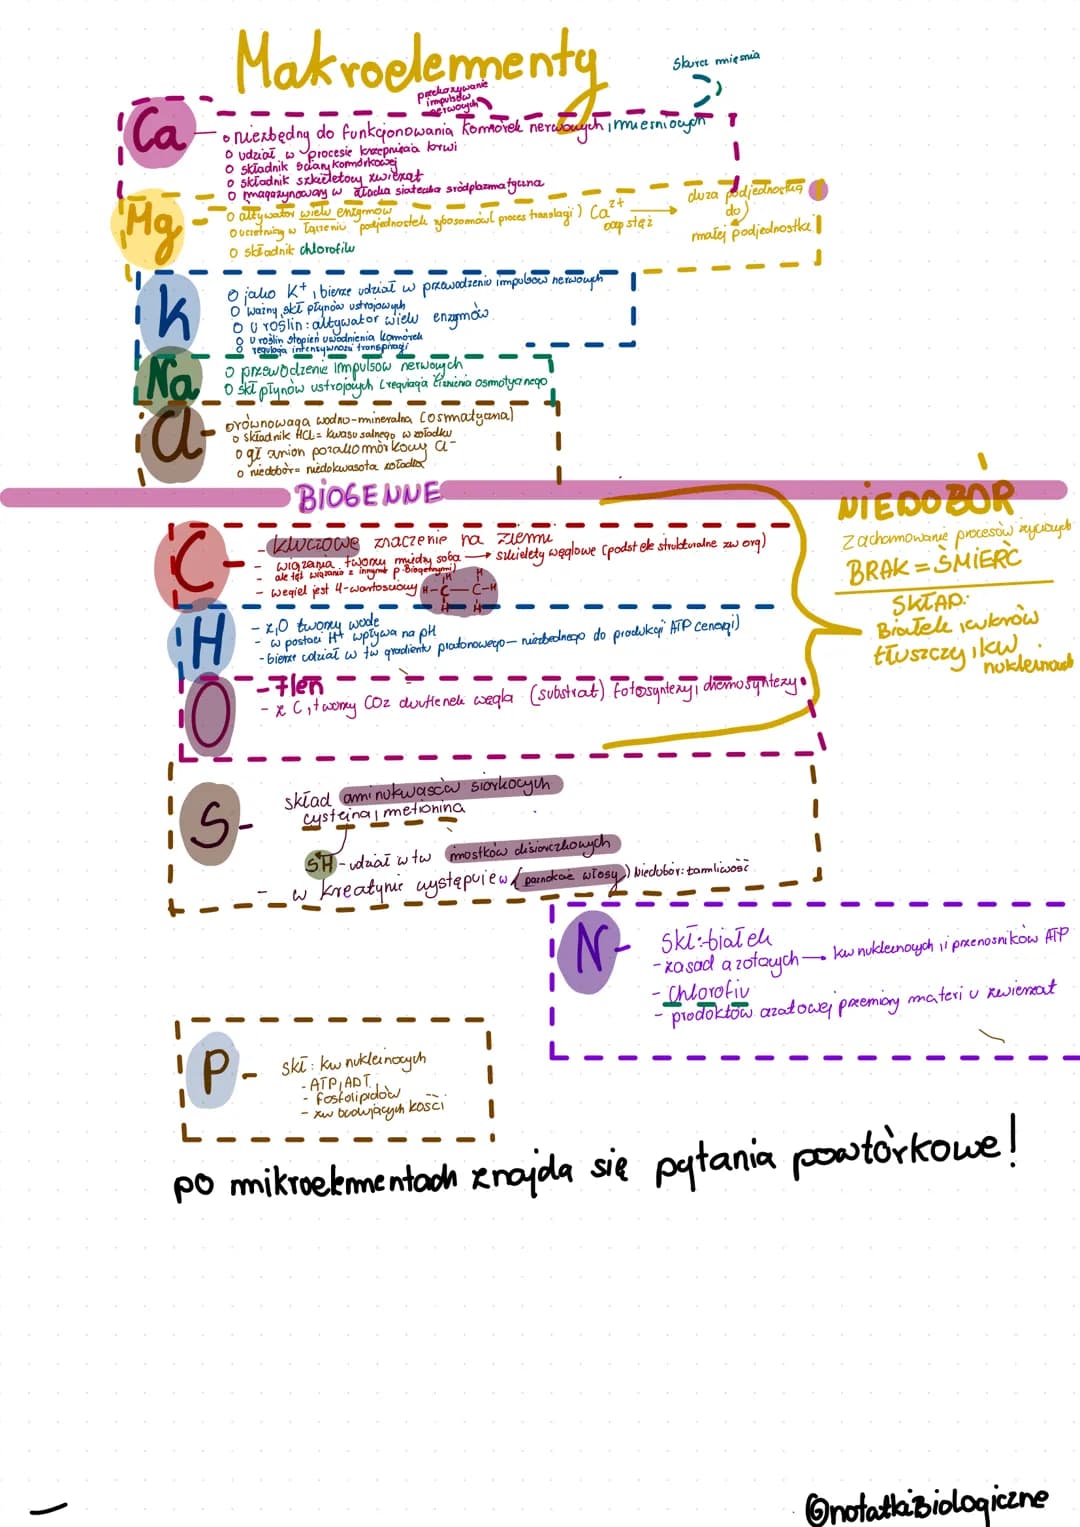 Makroelementy
skurcz mięśnia
przekazywanie
impulsów
nerwowych
Ca
niezbędny do funkcjonowania komórek nerwowych i mięśniowych
udział w procesie krzepnięcia krwi
składnik ściany komórkowej
składnik szkieletowy zwierząt
magazynowany w siateczka śródplazmatyczna
Mg
aktywator wielu enzymów
uczestniczy w łączeniu podjednostek rybosomów (proces translacji) Ca2+
odp stęż
duża podjednostka
do
małej podjednostka
składnik chlorofilu
K
jako K+, bierze udział w przewodzeniu impulsów nerwowych
ważny skł płynów ustrojowych
U roślin: aktywator wielu enzymów
U roślin stopień uwodnienia komórek
reguluja intensywność transpiracji
Na
przewodzenie impulsów nerwowych
skł płynów ustrojowych (regulacja ciśnienia osmotycznego
Cl
równowaga wodno-mineralna (osmotyczna)
składnik HCL = kwasu solnego w żołądku
gł anion pozakomórkowy Cl-
niedobór = niedokwasota żołądka
BIOGENNE
NIEDOBÓR
Zachamowanie procesów życiowych
BRAK = ŚMIERĆ
SKŁAD:
Białek, cukrów
tłuszczy, kw
nukleinowch
C
- kluczowe znaczenie na ziemi
- wiązania tworzy między sobą → szkielety węglowe (podst ele strukturalne zw org)
- ale też wiązania z innymi p. Biogennymi)
- węgiel jest 4-wartościowy H-C-C-H
H H
H H
H
- z, O tworzy wode
- w postaci H+ wpływa na pH
- bierze udział w tw gradientu protonowego - niezbędnego do produkcji ATP (energi)
O
- Tlen
- z C, tworzy CO2 dwutlenek węgla (substrat) fotosyntezy, chemosyntezy
S-
skład aminokwasów siarkowych
cysteina, metionina
SH - udział w tw mostków disiarczkowych
- w kreatynie występuje w (paznokcie włosy) Niedobór: łamliwość
N-
Skł: białek
- zasad azotowych → kw nukleinowych, i przenośników ATP
- Chlorofilu
- prodoktów azotowej przemiany materi u zwierząt
P-
skł: kw nukleinowych
- ATP, ADT
- fosfolipidów
- zw budujących kości
po mikroelementach znajda się pytania powtórkowe!
@notatkiBiologiczne